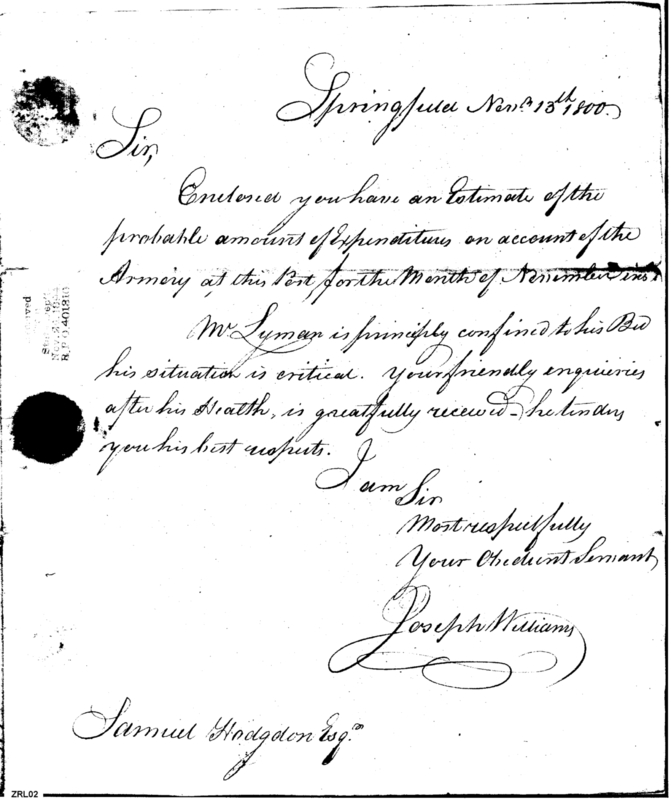 Springfield Novr. 13th 1800.
Sir,
Enclosed you have an Estimate of the
probable amount of Expenditures on account of the
Armery at this Post, for the Month of November ins
Mr Lyman is principly confined to his Bed
his situation is critical. Your friendly enquieries
after his Health, is greatfully received - he tenders
you his best respects.
I am Sir
Most respectfully
Your Obedient Servant
Joseph Williams
Samuel Hodgdon Esqr.
R.R.O. 401810
ZRL02